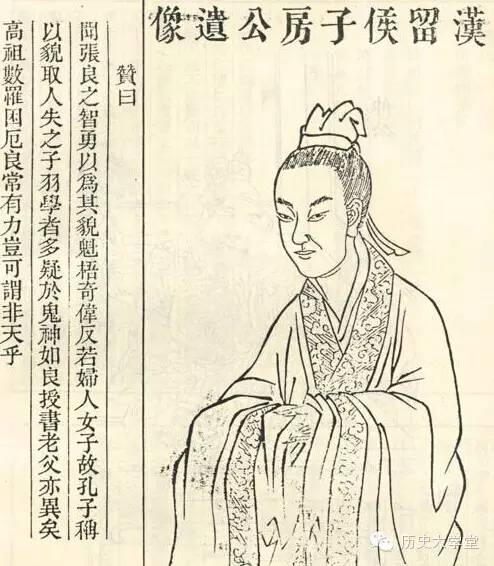 漢留侯子房公遺像
贊曰
聞張良之智勇以爲其貌魁梧奇偉反若婦人女子故孔子稱
以貌取人失之子羽學者多疑於鬼神如良授書老父亦異矣
高祖數罹困厄良常有力豈可謂非天乎
历史大学堂